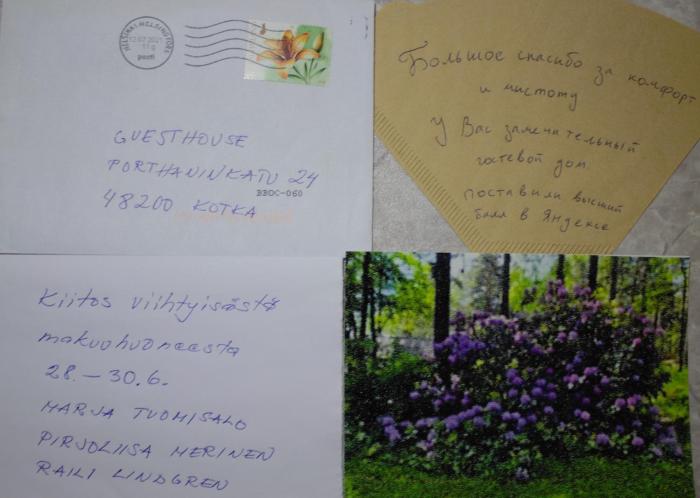 HELSINKI HELSINGFORS
12.07.2021
posti
GUESTHOUSE
PORTHANINKATU 24
BBDC-060
48200 KOTKA
Большое спасибо за комфорт
и чистоту
У Вас замечательный
гостевой дом
поставили высший
балл в Яндексе
Kiitos viihtyisästä
makuuhuoneesta
28.–30.6.
MARJA TUOMISALO
PIRJOLIISA MERINEN
RAILI LINDGREN